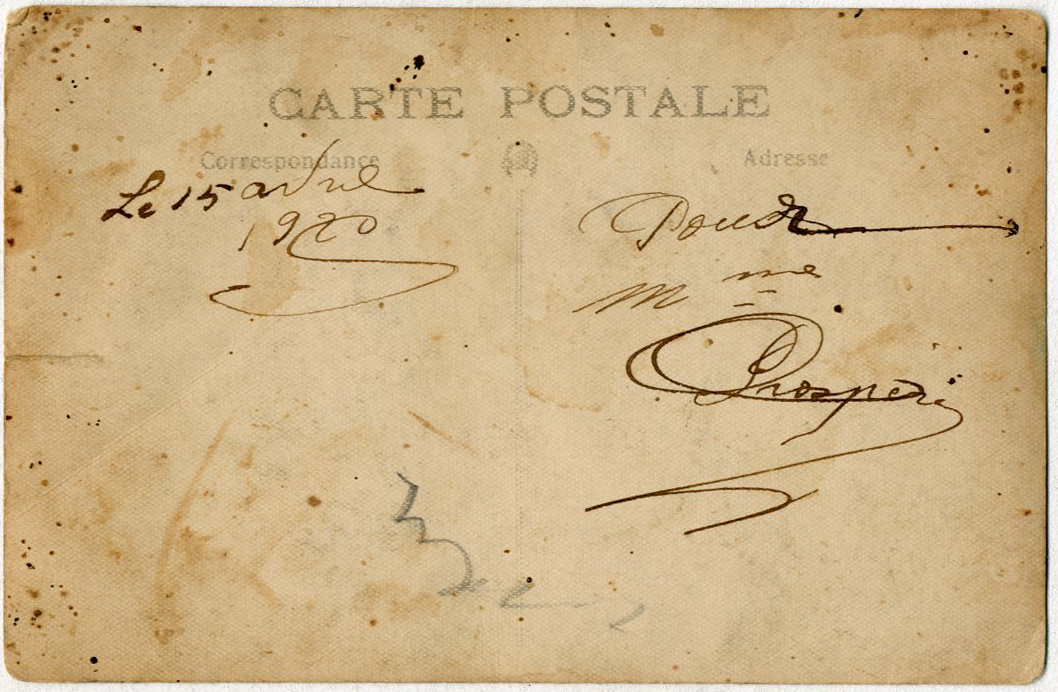 CARTE POSTALE
Correspondance
Adresse
Le 15 avril
1920
Pour
Mme